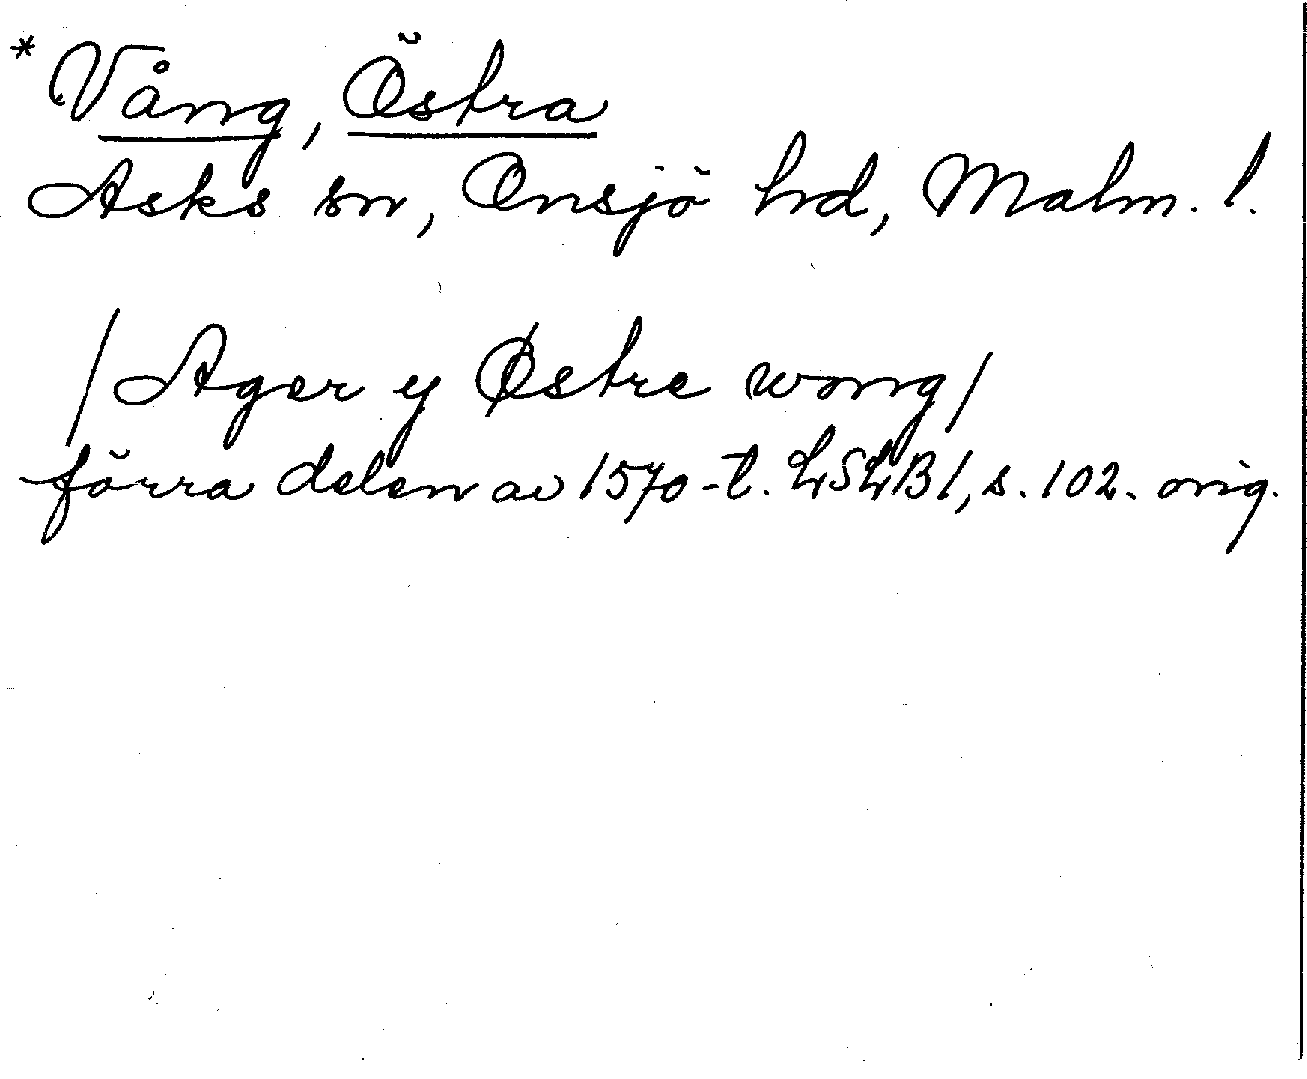 * Vång, Östra
Asks sn, Onsjö hd, Malm. l.
/Ager y Østre wong/
förra delen av 1570-t. LSLB1, s. 102. orig.